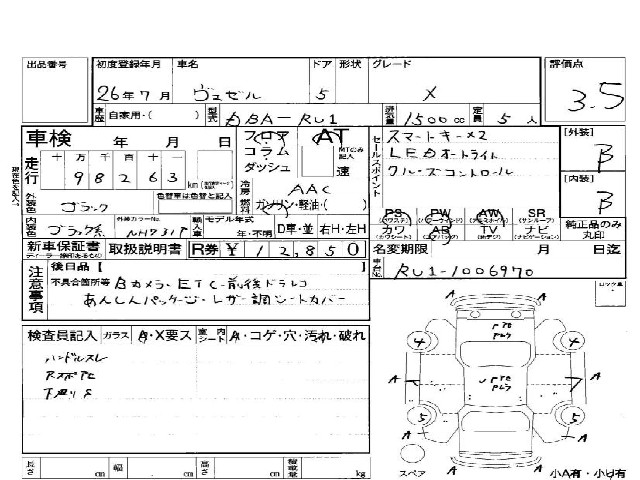 出品番号 初度登録年月 車名 ドア 形状 グレード 評価点
26年7月 ヴェゼル 5 X 3.5
車歴 自家用・( ) 型式 DBA-RU1 排気量 1500cc 定員 5人
車検 年 月 日 フロア コラム・ダッシュ AT MTのみ記入 速
セールスポイント スマートキー×2
LEDオートライト
クルーズコントロール
[外装] B
[内装] B
走行 十 万 千 百 十 一
98263 km
冷房 AAC
燃料 ガソリン・軽油・( )
外装色 ブラック 色替車は色替と記入
内装色 ブラック系 外装カラーNo. NH731P 輸入車 モデル年式 年・不明 D車・並 右H・左H
PS PW AW SR
カワ AB TV ナビ
純正品のみ丸印
新車保証書 取扱説明書 R券 ¥12,850
名変期限 月 日迄
車台No. RU1-1006970
注意事項 後日品【 】
不具合箇所等 Bカメラ・ETC・前後ドラレコ
あんしんパッケージ・レザー調シートカバー
検査員記入 ガラス A・X要ス 室内シート A・コゲ・穴・汚れ・破れ
ハンドルスレ
下廻りS
長さ cm 幅 cm 高さ cm 積載量 kg
A A
4 4
A A
5 5
A A
スペア 小A有・小U有